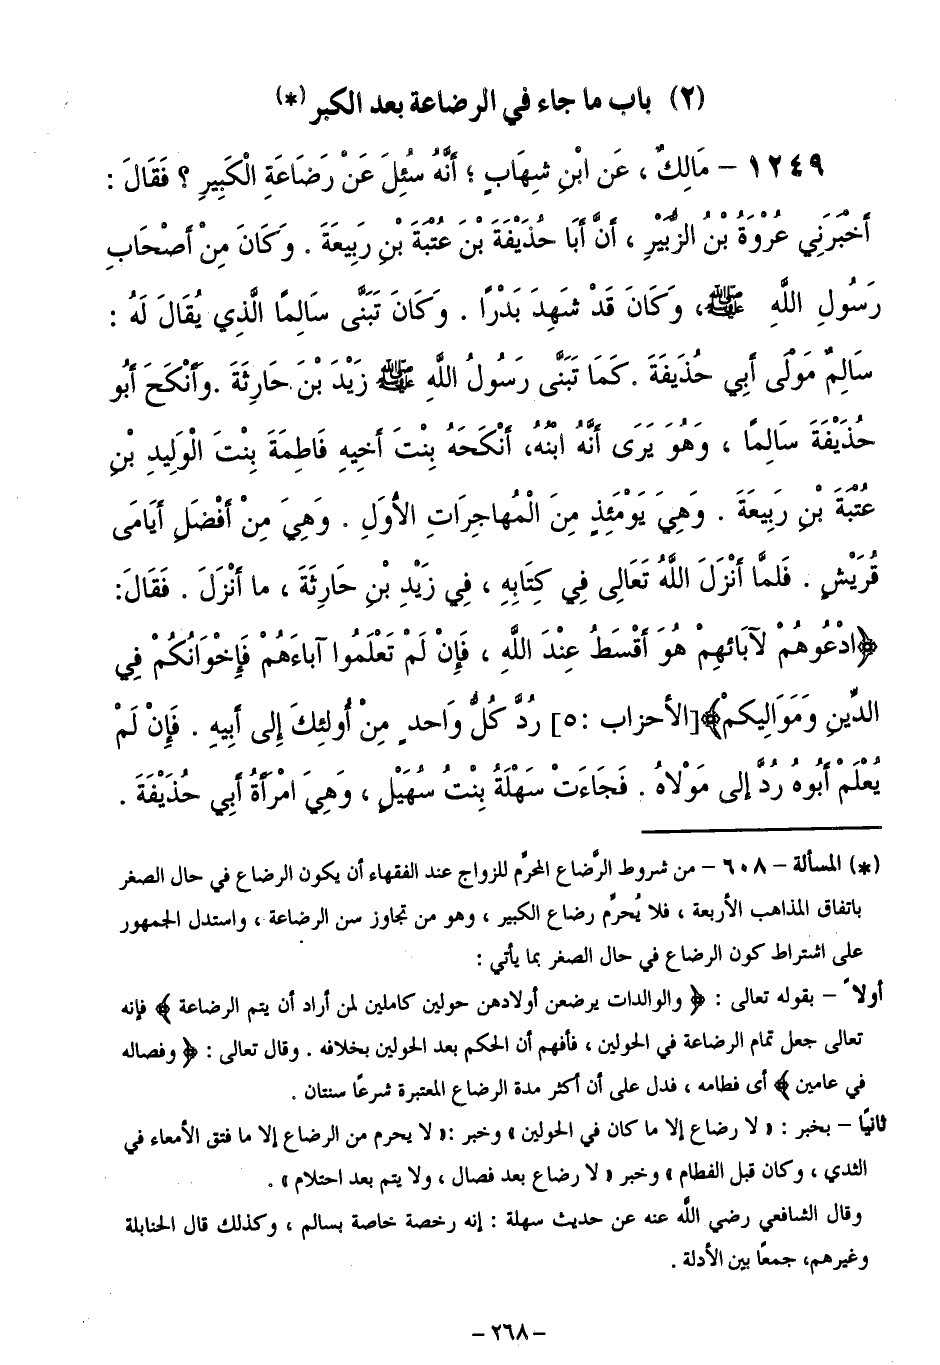 (٢) باب ما جاء في الرضاعة بعد الكبر (*)
١٢٤٩ - مَالِكٌ ، عَنِ ابْنِ شِهَابٍ ؛ أَنَّهُ سُئِلَ عَنْ رَضَاعَةِ الْكَبِيرِ ؟ فَقَالَ :
أَخْبَرَنِي عُرْوَةُ بْنُ الزُّبَيْرِ ، أَنَّ أَبَا حُذَيْفَةَ بْنَ عُتْبَةَ بْنِ رَبِيعَةَ . وَكَانَ مِنْ أَصْحَابِ
رَسُولِ اللَّهِ ﷺ، وَكَانَ قَدْ شَهِدَ بَدْرًا . وَكَانَ تَبَنَّى سَالِمًا الَّذِي يُقَالَ لَهُ :
سَالِمٌ مَوْلَى أَبِي حُذَيفَةَ . كَمَا تَبَنَّى رَسُولُ اللَّهِ ﷺ زَيْدَ بْنَ حَارِثَةَ . وَأَنْكَحَ أَبُو
حُذَيْفَةَ سَالِمًا ، وَهُوَ يَرَى أَنَّهُ ابْنُهُ، أَنْكَحَهُ بِنْتَ أخِيهِ فَاطِمَةَ بِنْتَ الْوَلِيدِ بْنِ
عُتْبَةَ بْنِ رَبِيعَةَ . وَهِيَ يَوْمَئِذٍ مِنَ الْمُهاجِرَاتِ الأُوَلِ . وَهِيَ مِنْ أَفْضَلِ أَيَامَى
قُرَيْشٍ . فَلمَّا أَنْزَلَ اللَّهُ تَعَالِى فِي كِتَابِهِ ، فِي زَيْدِ بْنِ حَارِثَةَ ، ما أَنْزَلَ . فَقَالَ:
﴿ادْعُوهُمْ لآبَائهِمْ هُوَ أَقْسَطُ عِنْدَ اللَّهِ ، فَإِنْ لَمْ تَعْلَمُوا آباءَهُمْ فَإِخْوَانُكُمْ فِي
الدِّينِ وَمَوَالِيكمْ﴾[الأحزاب :٥] رُدَّ كُلُّ وَاحدٍ مِنْ أُولئِكَ إِلى أَبِيهِ . فَإِنْ لَمْ
يُعْلَمْ أَبُوهُ رُدَّ إلى مَوْلاهُ . فَجَاءَتْ سَهْلَةُ بِنْتُ سُهَيْلٍ ، وَهِيَ امْرَأَةُ أَبِي حُذَيْفَةَ .
(*) المسألة - ٦٠٨ - من شروط الرَّضاع المحرَّم للزواج عند الفقهاء أن يكون الرضاع في حال الصغر
باتفاق المذاهب الأربعة ، فلا يُحرِّم رضاع الكبير ، وهو من تجاوز سن الرضاعة ، واستدل الجمهور
على اشتراط كون الرضاع في حال الصغر بما يأتي :
أولاً - بقوله تعالى : ﴿ والوالدات يرضعن أولادهن حولين كاملين لمن أراد أن يتم الرضاعة ﴾ فإنه
تعالى جعل تمام الرضاعة في الحولين ، فأفهم أن الحكم بعد الحولين بخلافه . وقال تعالى : ﴿ وفصاله
في عامين ﴾ أى فطامه ، فدل على أن أكثر مدة الرضاع المعتبرة شرعًا سنتان .
ثانيًا - بخبر : « لا رضاع إلا ما كان في الحولين » وخبر :« لا يحرم من الرضاع إلا ما فتق الأمعاء في
الثدي ، وكان قبل الفطام » وخبر « لا رضاع بعد فصال ، ولا يتم بعد احتلام » .
وقال الشافعي رضي اللَّه عنه عن حديث سهلة : إنه رخصة خاصة بسالم ، وكذلك قال الحنابلة
وغيرهم، جمعًا بين الأدلة .
- ٢٦٨ -